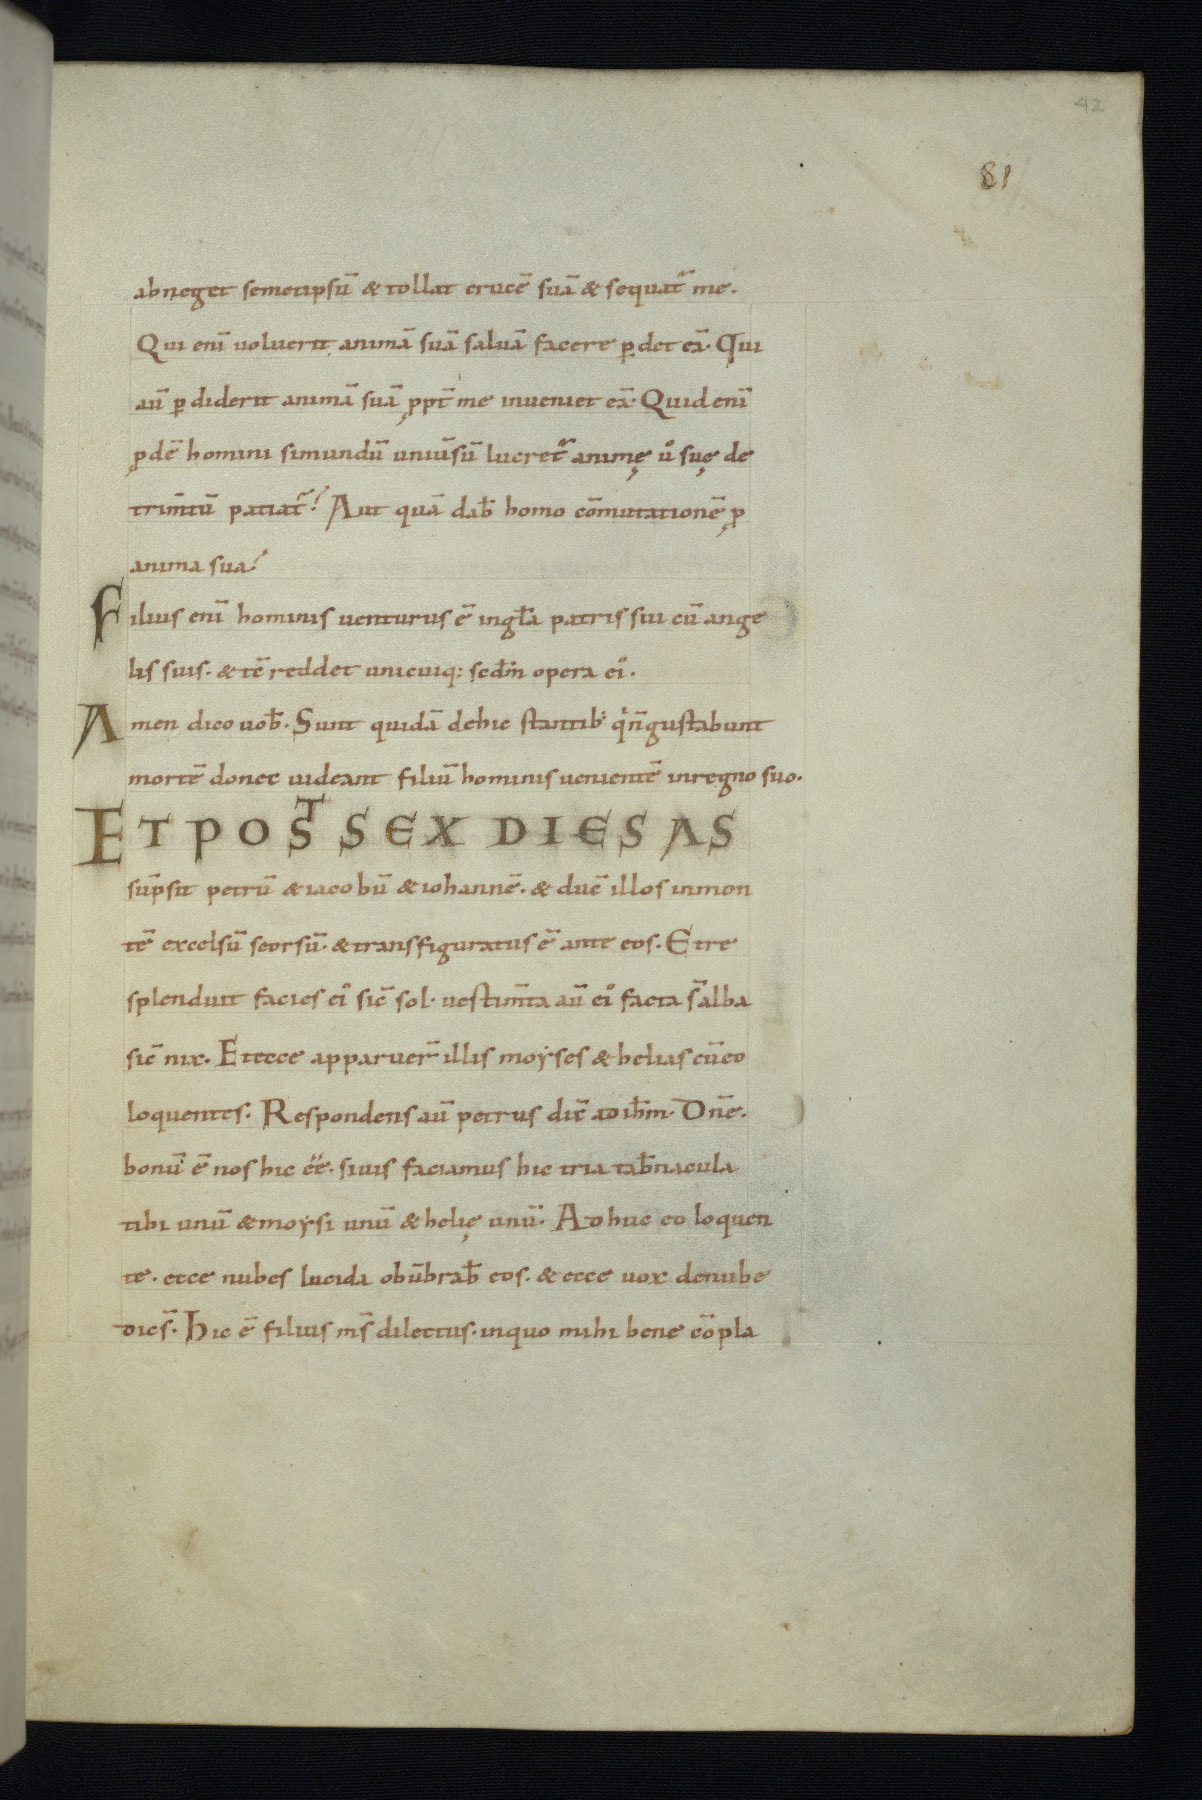 42
81
abneget semetipsū & tollat crucē suā & sequat᷑ me.
Qui enī voluerit animā suā saluā facere ꝑdet eā. Qui
aū ꝑdiderit animā suā ꝓpt̄ me inveniet eā. Quid enī
ꝓdē homini simundū uniūsū lucret᷑ animę ů suę de
trim̄tū patiat᷑? Aut quā dab̄ homo cōmutationē ꝓ
anima sua?
Filius enī hominis venturus ē inglā patris sui cū ange
lis suis. & tē reddet unicuiq; scd̄m opera ei᷒.
Amen dico vob̄. Sunt quidā dehic stantib; qin̄gustabunt
mortē donec uideant filiū hominis uenientē inregno suo.
ET POST SEX DIES AS
sūpsit petrū & iacobū & iohannē. & duc̄ illos inmon
tē excelsū seorsū. & transfiguratus ē ante eos. Et re
splenduit facies ei᷒ sic̄ sol. uestim̄ta aū ei᷒ facta s̄ alba
sic̄ nix. Et ecce apparuer̄ illis moyses & helias cūeo
loquentes. Respondens aū petrus dic̄ ad ihm̄. Dn̄e.
bonū ē nos hic ēē. siuis faciamus hic tria tab̄nacula
tibi unū & moysi unū & helię unū. Adhuc eo loquen
te. ecce nubes lucida obūbrab̄ eos. & ecce uox denube
dices̄. Hic ē filius m̄s dilectus. inquo mihi bene cōpla